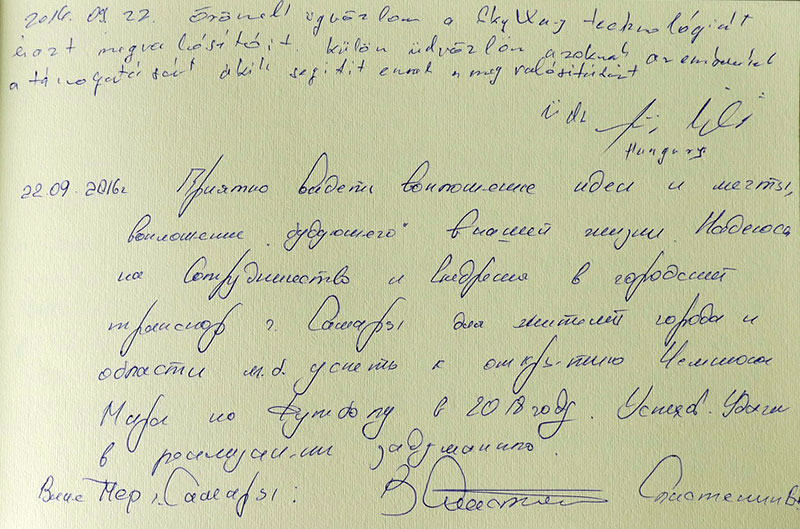 2016. 09 22. Örömmel üdvözlöm a SkyWay technológiát
és azt megvalósítóit. külön üdvözlöm azoknak az embereket
a támogatását akik segitit ennek a meg valósitását
üdv
Hungary
22.09.2016г Приятно видеть воплощение идеи и мечты,
воплощение "будующего" в нашей жизни. Надеюсь
на сотрудничество и внедрения в городской
транспорт г. Самары для жителей города и
области м.б. успеть к открытию Чемпиона
Мира по футболу в 2018 году. Успехов. Удачи
в реализации задуманного.
Вице Мер г. Самары: Сластенин В.